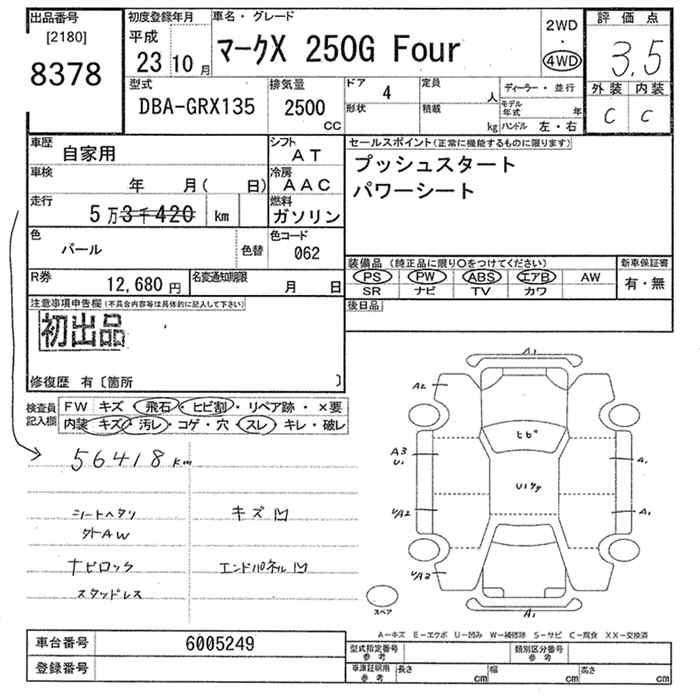 出品番号
[2180]
8378
初度登録年月
平成
23 10 月
車名・グレード
マークX 250G Four
2WD
・
4WD
評価点
3.5
外装 内装
C C
型式
DBA-GRX135
排気量
2500
CC
ドア
4
形状
定員
人
積載
kg
ディーラー・並行
モデル年式
年
ハンドル 左・右
車歴
自家用
シフト
AT
車検
年 月( 日)
冷房
AAC
走行
5万3千420 km
燃料
ガソリン
色
パール
色替
色コード
062
R券
12,680円
名変通知期限
月 日
セールスポイント(正常に機能するものに限ります)
プッシュスタート
パワーシート
装備品(純正品に限り○をつけてください)
PS PW ABS エアB AW
SR ナビ TV カワ
新車保証書
有・無
後日品
注意事項申告欄(不具合内容等は具体的に記入して下さい)
初出品
修復歴 有〔箇所 〕
検査員
記入欄
FW キズ・飛石・ヒビ割・リペア跡・×要
内装 キズ・汚レ・コゲ・穴・スレ・キレ・破レ
56418km
シートヘタリ
キズ凹
外AW
ナビロック
エンドパネル凹
スタッドレス
A1
A2
ヒビ
A3
U1
A1
U1ケケ
UA2
A1
UA2
A1
スペア
A−キズ E−エクボ U−凹み W−補修跡 S−サビ C−腐食 XX−交換済
車台番号
6005249
登録番号
型式指定番号
参考
類別区分番号
参考
車庫証明用
参考
長さ
cm
幅
cm
高さ
cm